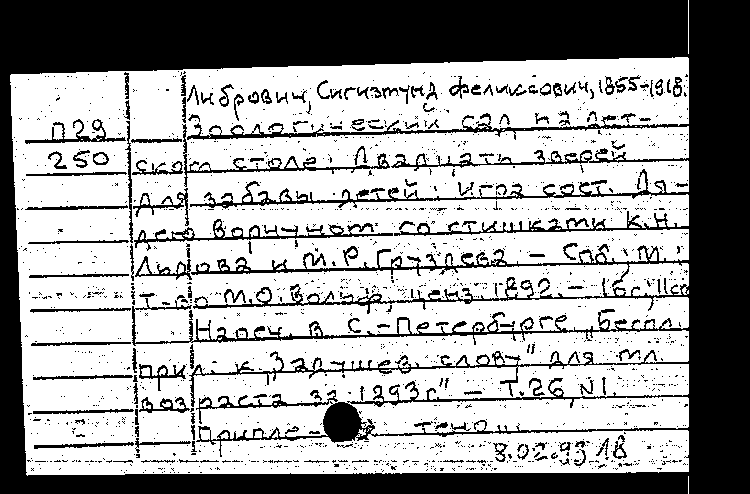 Либрович, Сигизмунд Феликсович, 1855-1918.
П29 Зоологический сад на дет-
250 ском столе: Двадцать зверей
для забавы детей: Игра сост. Дя-
дею Ворчуном со стишками К.Н.
Льдова и М.Р. Груздева – Спб.; М.:
Т-во М.О. Вольф, ценз. 1892. – 16с, 11
Напеч. в С.-Петербурге „Беспл.
прил. к „Задушев. слову" для мл.
возраста за 1893г." – Т.26, N1.
Припле- тено
8.02.93